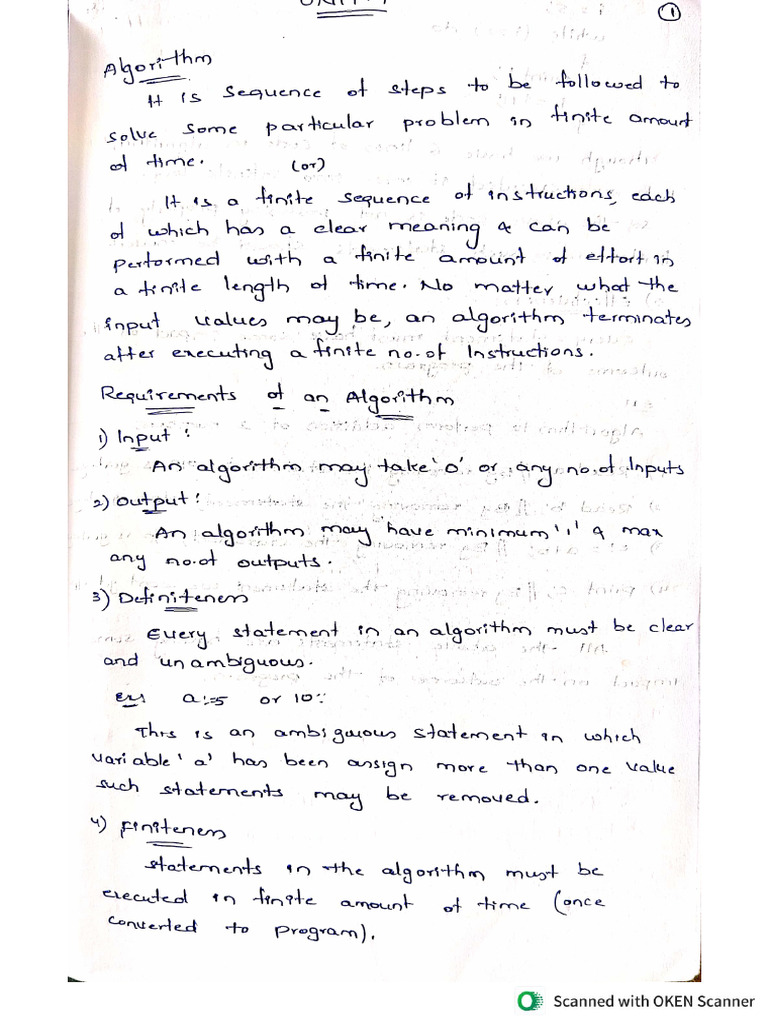 1
Algorithm
It is sequence of steps to be followed to
solve some particular problem in finite amount
of time. (or)
It is a finite sequence of instructions, each
of which has a clear meaning & can be
performed with a finite amount of effort in
a finite length of time. No matter what the
input values may be, an algorithm terminates
after executing a finite no. of Instructions.
Requirements of an Algorithm
1) Input :
An algorithm may take '0' or any no. of Inputs
2) Output :
An algorithm may have minimum '1' & max
any no. of outputs.
3) Definiteness
Every statement in an algorithm must be clear
and unambiguous.
ex: a:=5 or 10::
This is an ambiguous statement in which
variable 'a' has been assign more than one value
such statements may be removed.
4) Finiteness
Statements in the algorithm must be
executed in finite amount of time (once
converted to program).
Scanned with OKEN Scanner